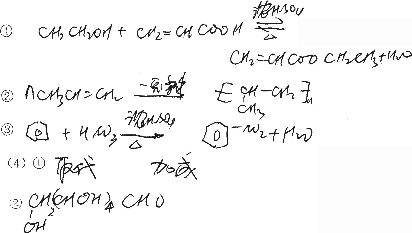 ① CH₃CH₂OH + CH₂=CHCOOH 浓H₂SO₄ △
CH₂=CHCOOCH₂CH₃+H₂O
② nCH₃CH=CH₂ 一定条件 → -[CH-CH₂]n-
CH₃
③ ⌬ + HNO₃ 浓H₂SO₄ △ → ⌬-NO₂ + H₂O
(4) ① 取代 加成
② CH₂(CHOH)₄CHO
OH